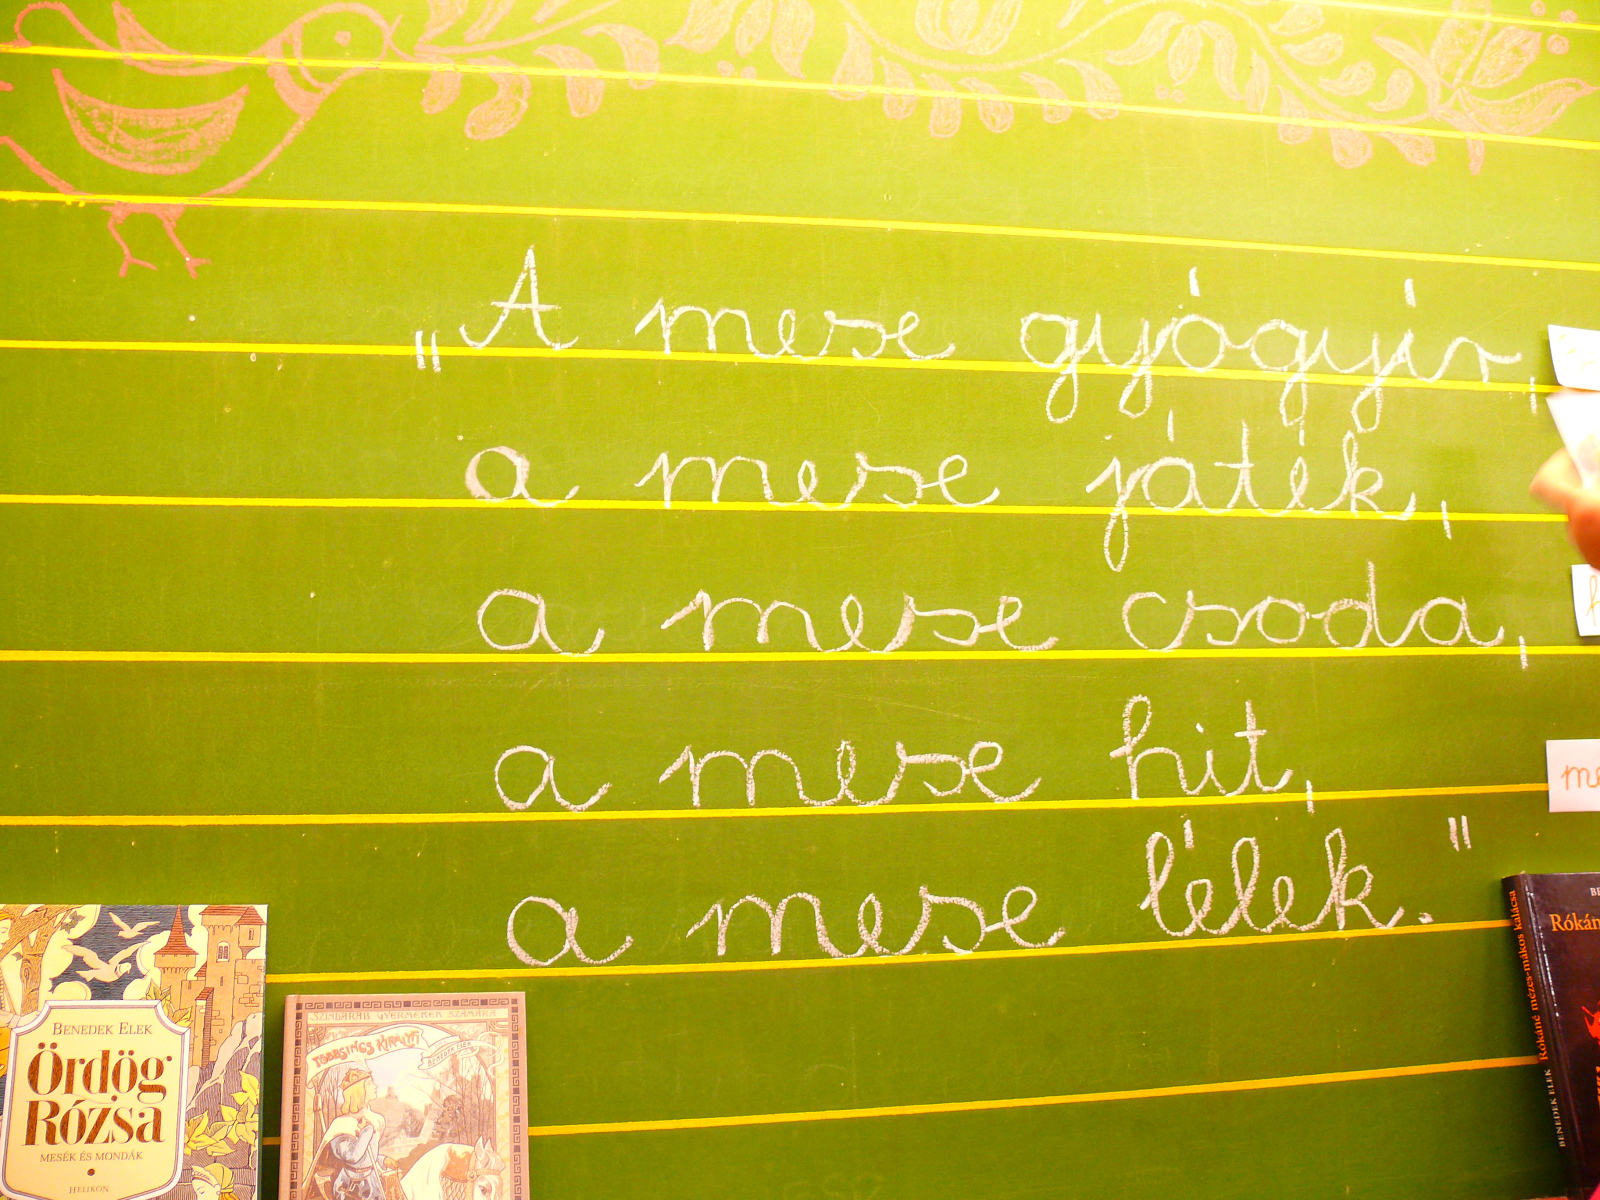 „A mese gyógyír,
a mese játék,
a mese csoda,
a mese hit,
a mese lélek."
BENEDEK ELEK
Ördög
Rózsa
MESÉK ÉS MONDÁK
HELIKON
SZINDARAB GYERMEKEK SZÁMÁRA
TÖBBSINCS KIRÁLYFI
BENEDEK ELEK
BENEDEK ELEK Rókáné mézes-mákos kalácsa